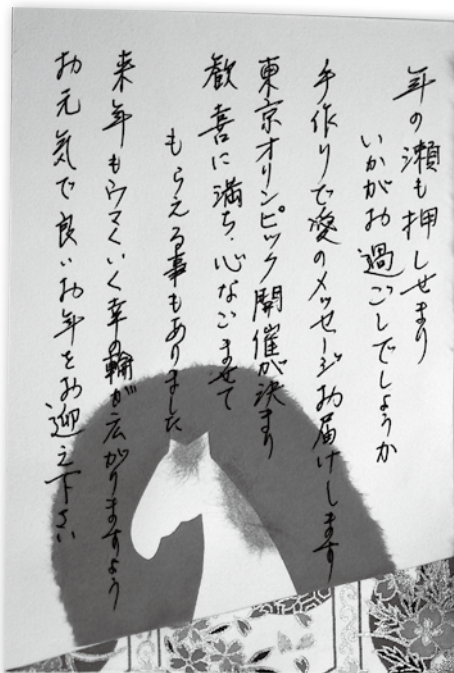 年の瀬も押しせまり
いかがお過ごしでしょうか
手作りで愛のメッセージお届けします
東京オリンピック開催が決まり
歓喜に満ち、心なごませて
もらえる事もありました
来年もウマくいく幸の輪が広がりますよう
お元気で良いお年をお迎え下さい